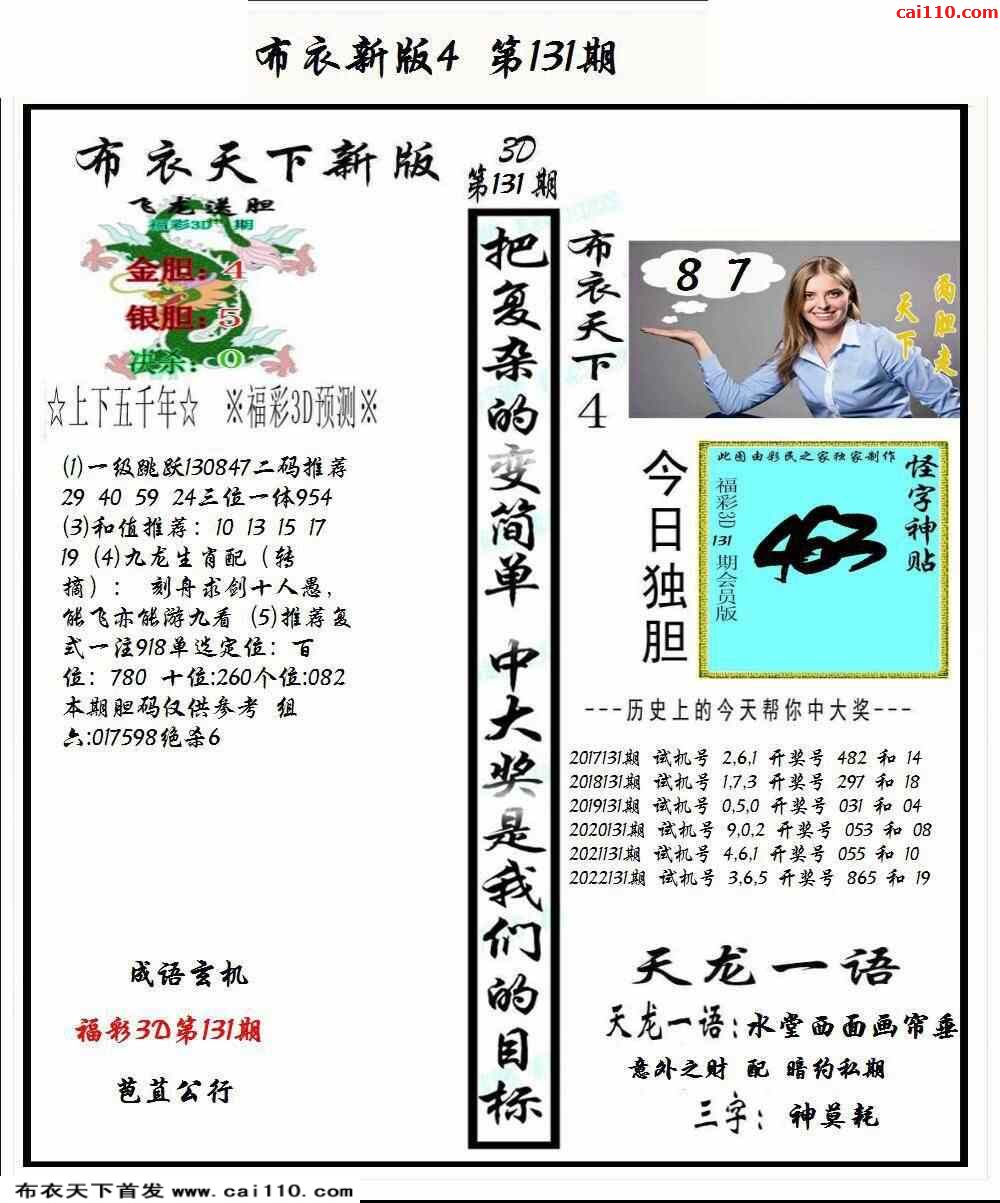 cai110.com
布衣新版4 第131期
布衣天下新版
3D
第131期
飞龙送胆
福彩3D 期
金胆：4
银胆：5
决杀：0
☆上下五千年☆ ※福彩3D预测※
(1)一级跳跃130847二码推荐
29 40 59 24三位一体954
(3)和值推荐：10 13 15 17
19 (4)九龙生肖配（转
摘）： 刻舟求剑十人愚，
能飞亦能游九看 (5)推荐复
式一注918单选定位：百
位：780 十位:260个位:082
本期胆码仅供参考 组
六:017598绝杀6
成语玄机
福彩3D第131期
芭苴公行
把复杂的变简单 中大奖是我们的目标
布衣天下4
8 7
两胆走
天下
今日独胆
此图由彩民之家独家制作
怪字神贴
福彩3D 131 期会员版
---历史上的今天帮你中大奖---
2017131期 试机号 2,6,1 开奖号 482 和 14
2018131期 试机号 1,7,3 开奖号 297 和 18
2019131期 试机号 0,5,0 开奖号 031 和 04
2020131期 试机号 9,0,2 开奖号 053 和 08
2021131期 试机号 4,6,1 开奖号 055 和 10
2022131期 试机号 3,6,5 开奖号 865 和 19
天龙一语
天龙一语:水堂西面画帘垂
意外之财 配 暗约私期
三字： 神莫耗
布衣天下首发 www.cai110.com